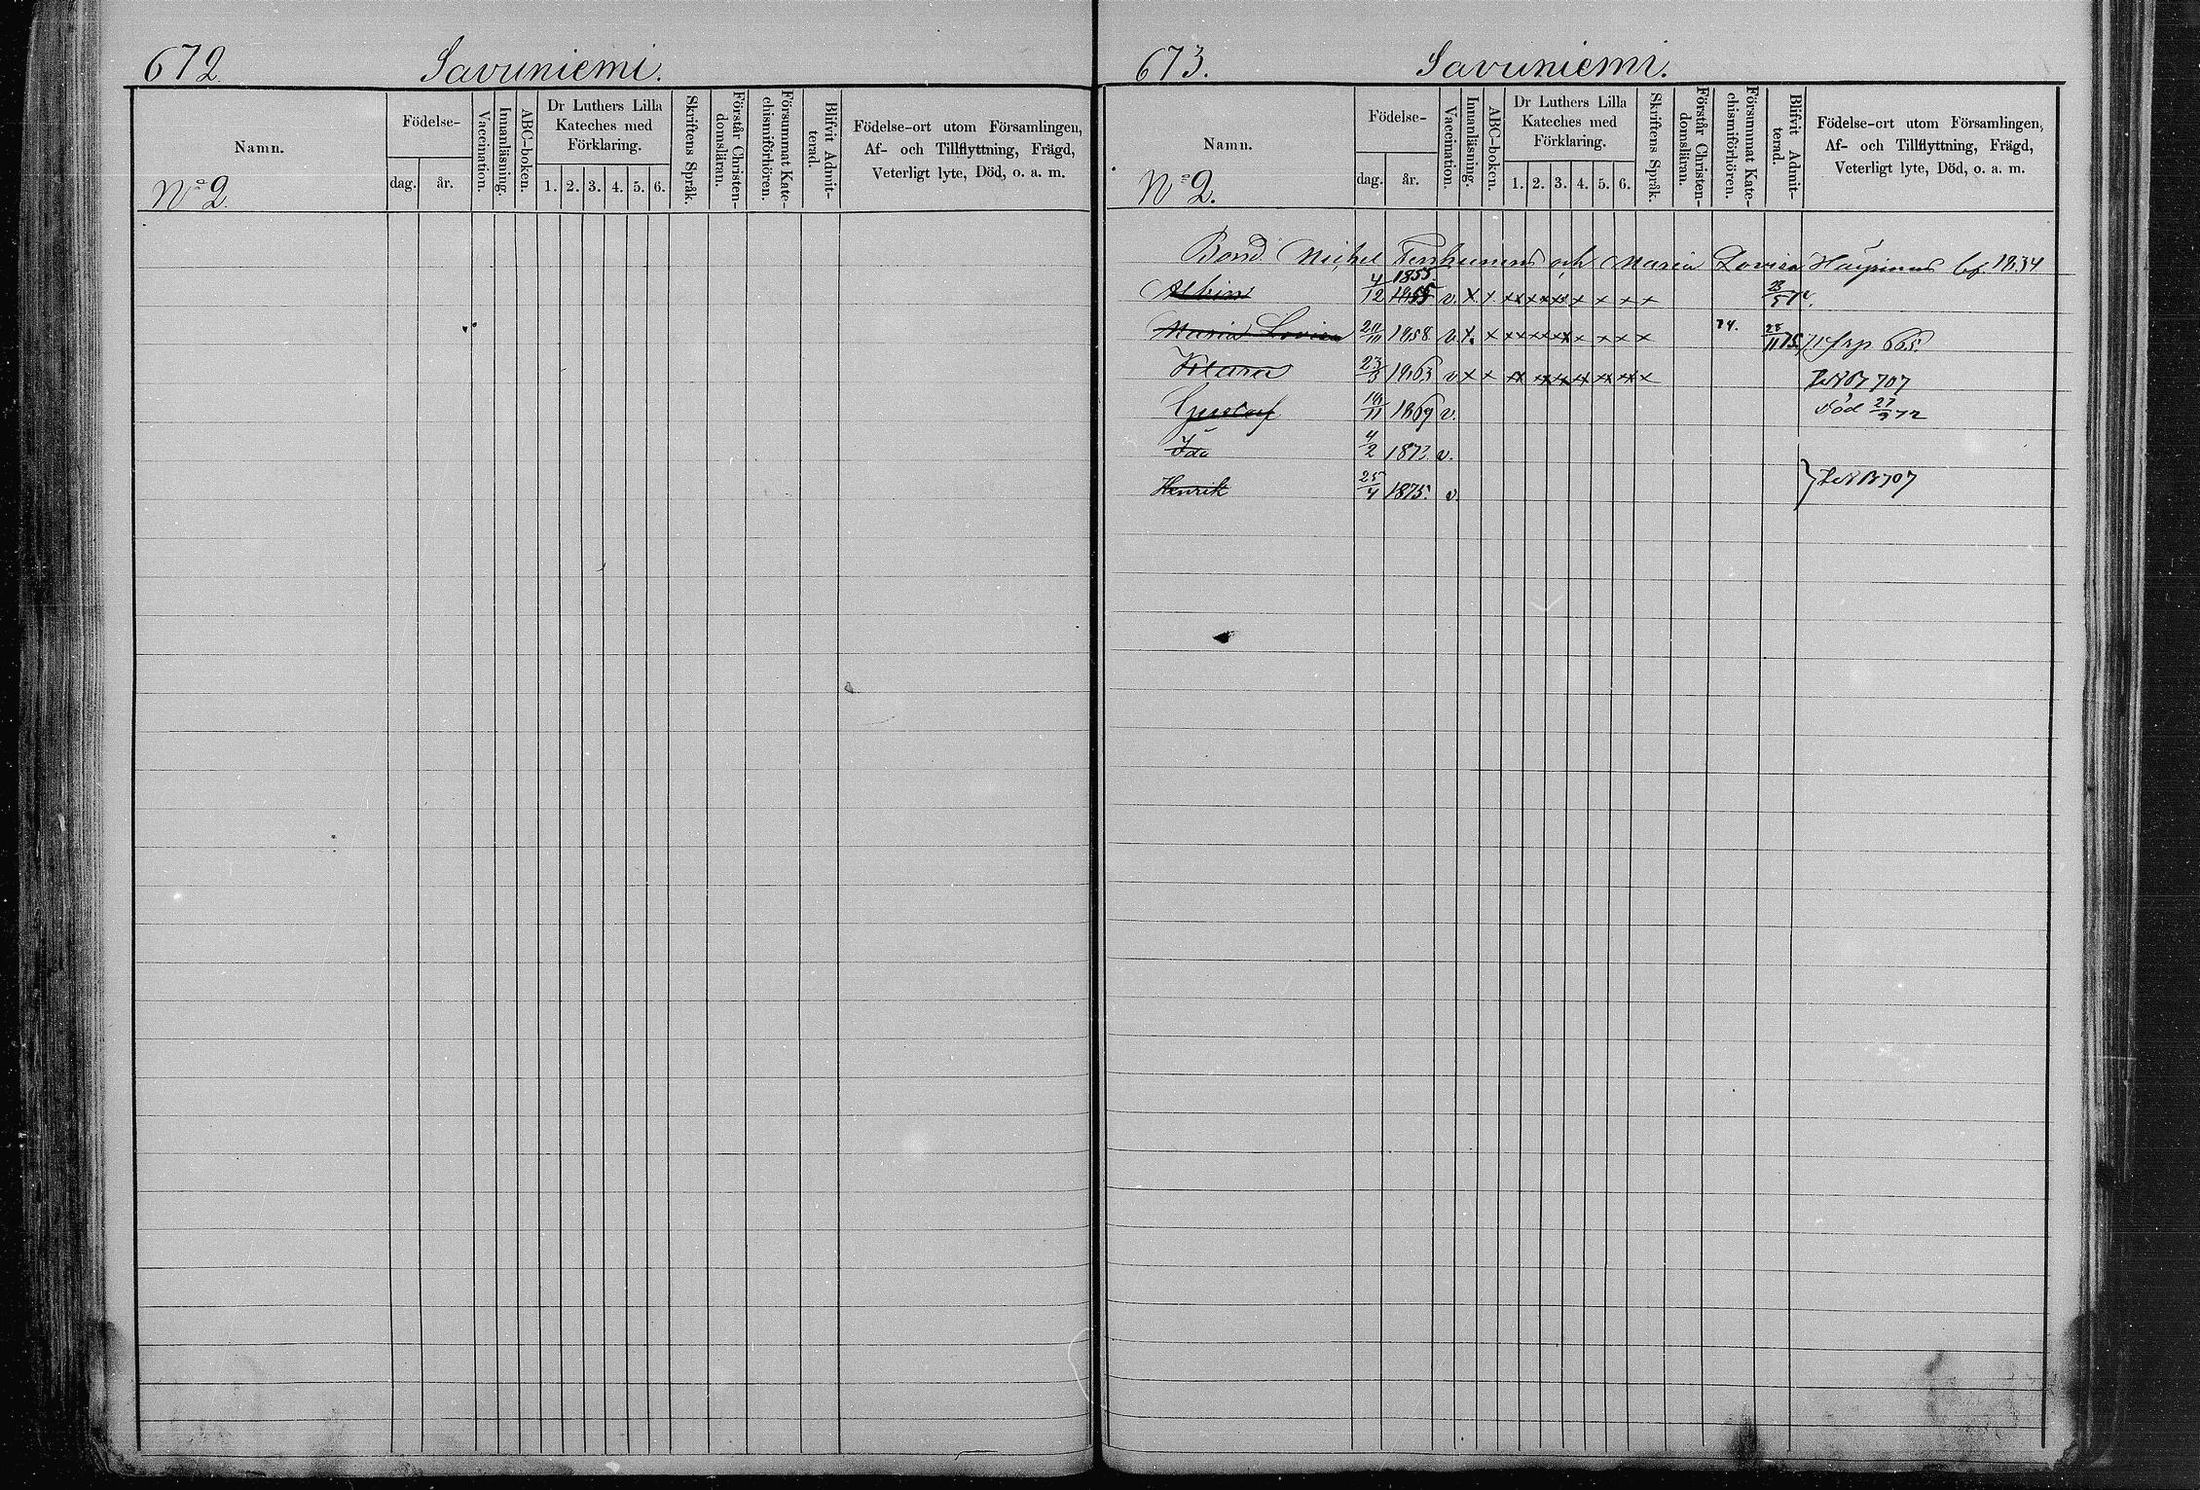 672. Savuniemi.
Namn.
Födelse-
dag. år.
Vaccination.
Innanläsning.
ABC-boken.
Dr Luthers Lilla
Kateches med
Förklaring.
1. 2. 3. 4. 5. 6.
Skriftens Språk.
Förstår Christen-
domsläran.
Försummat Kate-
chismiförhören.
Blifvit Admit-
terad.
Födelse-ort utom Församlingen,
Af- och Tillflyttning, Frägd,
Veterligt lyte, Död, o. a. m.
No 2.
673. Savuniemi.
Namn.
Födelse-
dag. år.
Vaccination.
Innanläsning.
ABC-boken.
Dr Luthers Lilla
Kateches med
Förklaring.
1. 2. 3. 4. 5. 6.
Skriftens Språk.
Förstår Christen-
domsläran.
Försummat Kate-
chismiförhören.
Blifvit Admit-
terad.
Födelse-ort utom Församlingen,
Af- och Tillflyttning, Frägd,
Veterligt lyte, Död, o. a. m.
No 2.
Bond. Michel och Maria Lovisa 1834
Albin 4/12 1855 v. x x x x x x x x x x x
Maria Lovisa 20/11 1858 v. x. x x x x x x x x x x 74. 11 75 665.
1863 v x x x x x x x x x x 707
Gustaf 11 1869 v. död 27/9 72
Ida 4/2 1873 v.
Henrik 25/4 1875. v. } 707